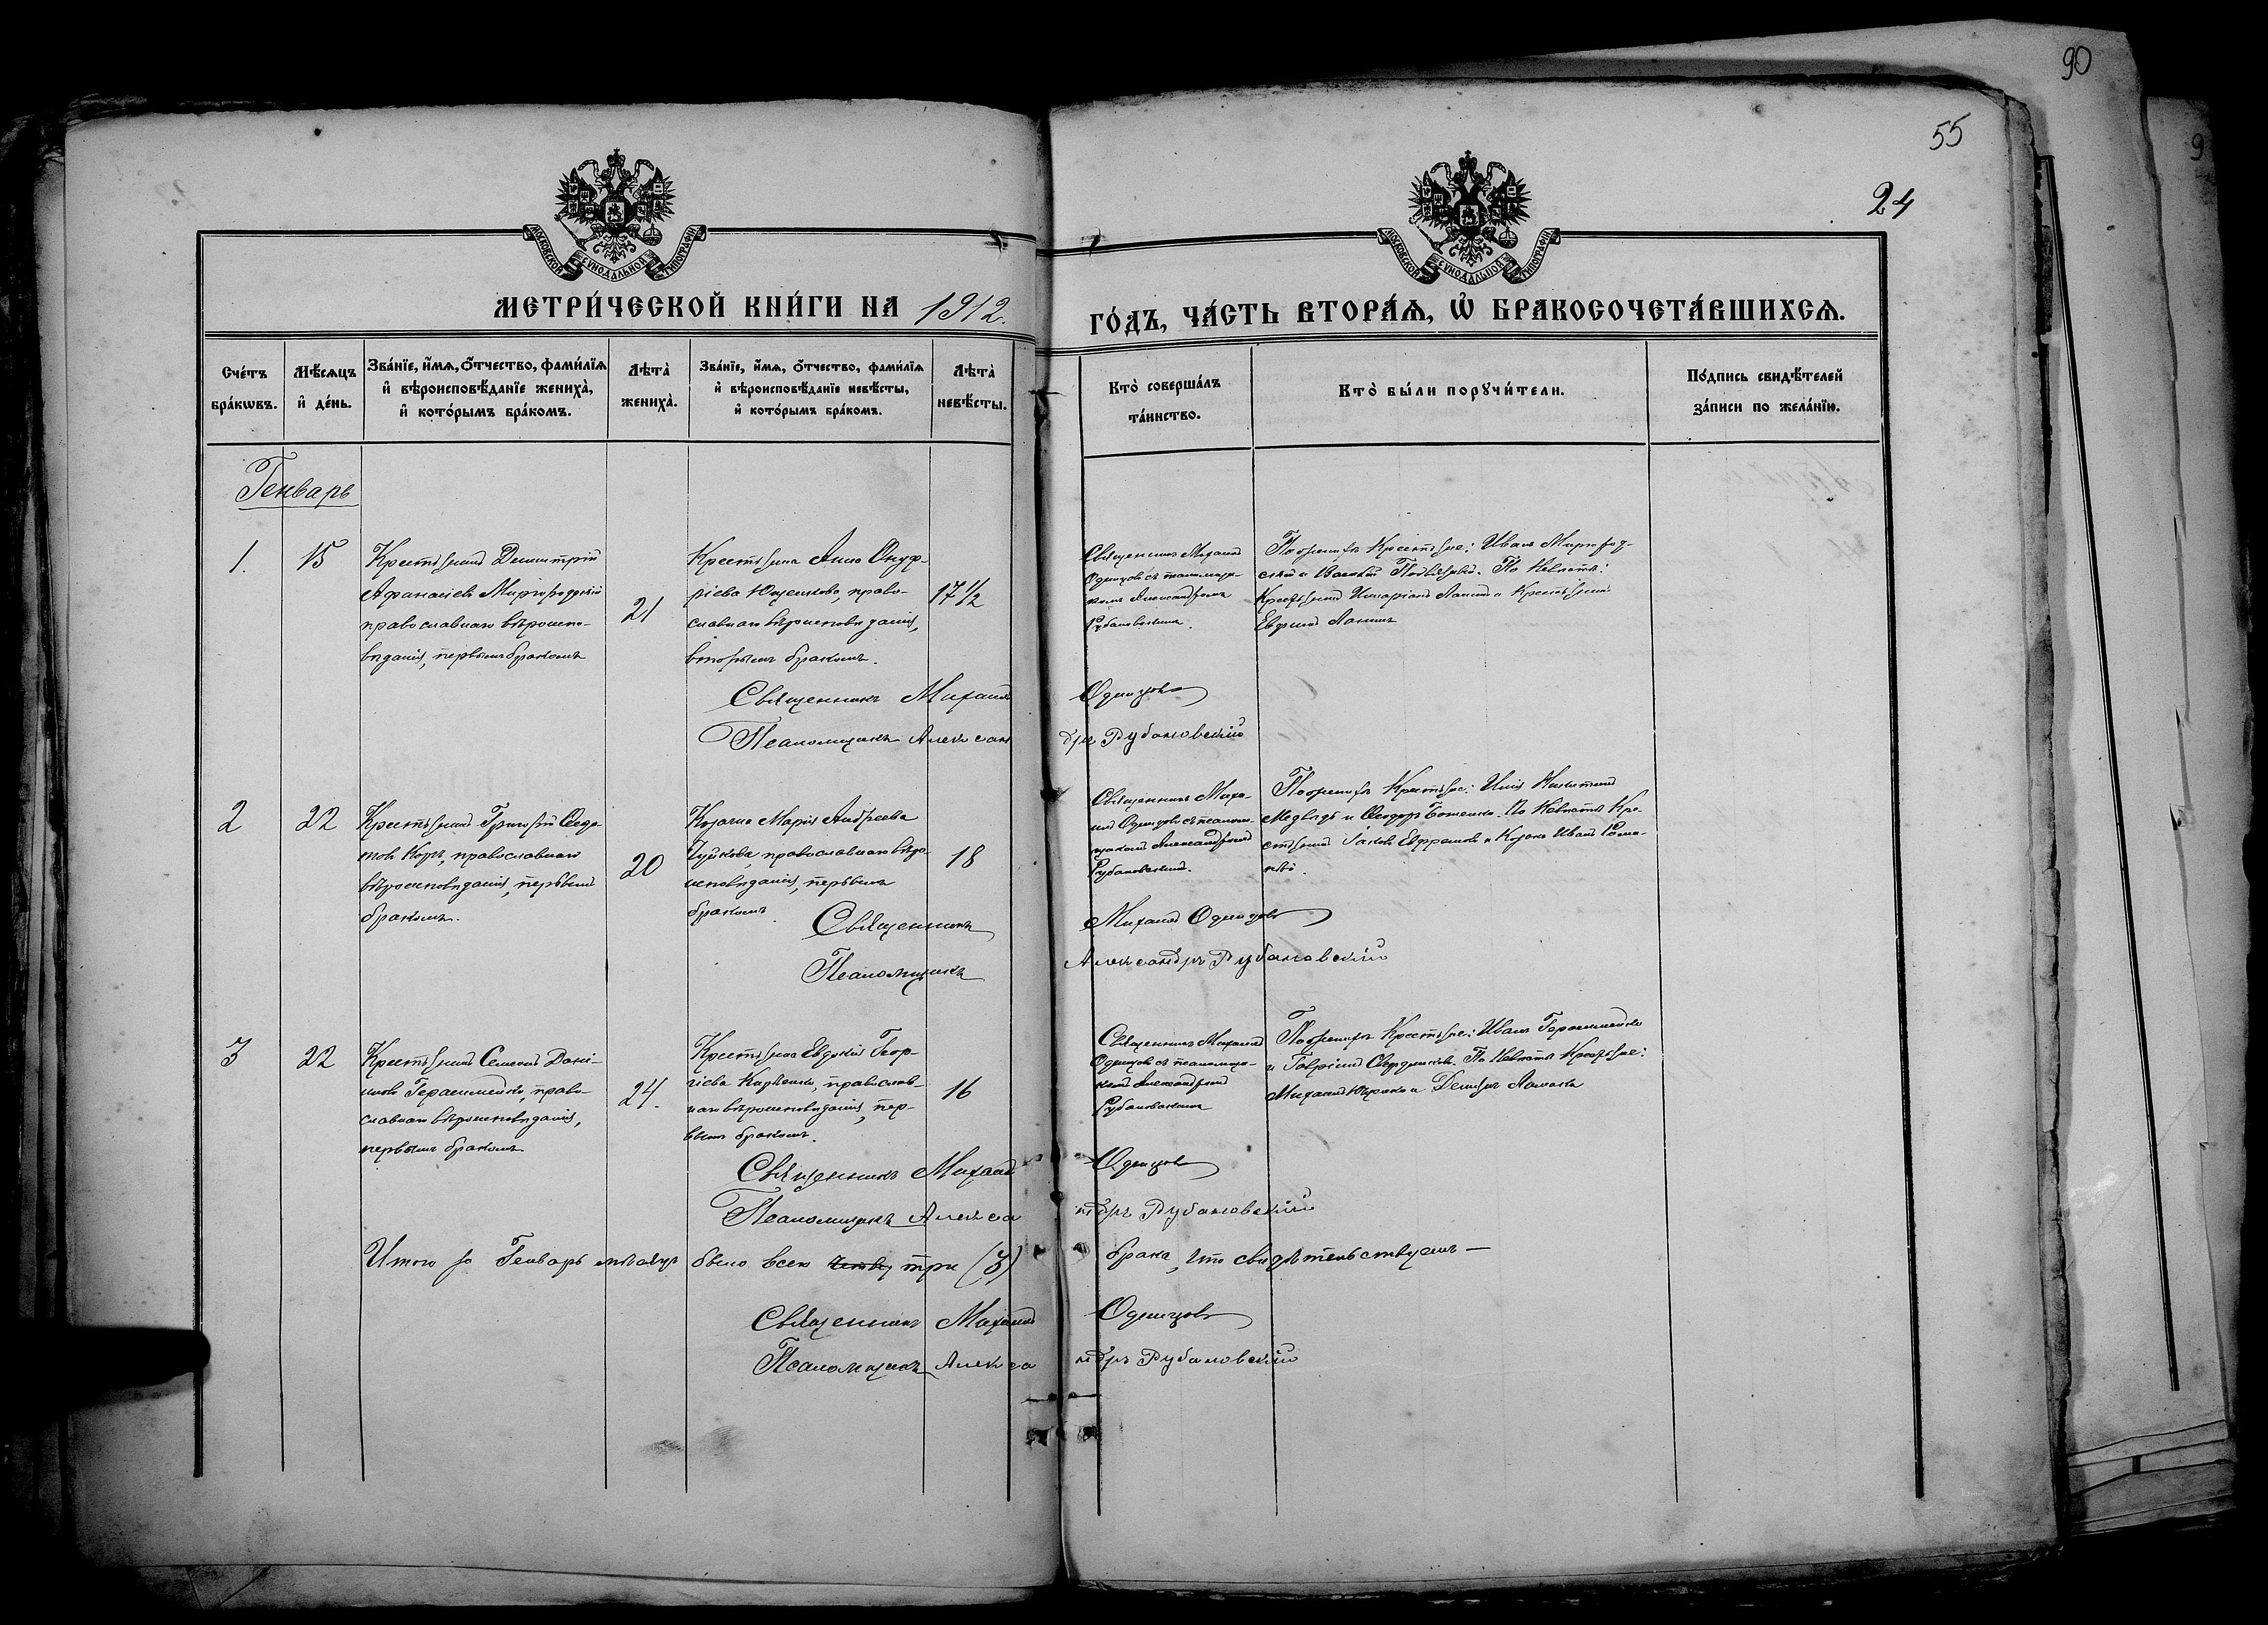 90
55
9
24
МОСКОВСКОЙ СѴНОДАЛЬНОЙ ТИПОГРАФІИ
МОСКОВСКОЙ СѴНОДАЛЬНОЙ ТИПОГРАФІИ
МЕТРИ́ЧЕСКОЙ КНИ́ГИ НА 1912.
ГО́ДЪ, ЧА́СТЬ ВТОРА́Ѧ, Ѡ҆ БРАКОСОЧЕТА́ВШИХСѦ.
Сче́тъ бра́кѡвъ.
Мѣ́сѧцъ и҆ де́нь.
Зва́нїе, и҆́мѧ, ѻ҆́тчество, фами́лїѧ и҆ вѣроисповѣ́данїе жениха̀, и҆ кото́рымъ бра́комъ.
Лѣта̀ жениха̀.
Зва́нїе, и҆́мѧ, ѻ҆́тчество, фами́лїѧ и҆ вѣроисповѣ́данїе невѣ́сты, и҆ кото́рымъ бра́комъ.
Лѣта̀ невѣ́сты.
Кто̀ соверша́лъ та́инство.
Кто̀ бы́ли порꙋчи́тели.
По́дпись свидѣ́телей за́писи по жела́нїю.
Генварь
1.
15
Крестьянинъ Димитрій
Афанасіевъ Миргородскій
православнаго вѣроиспо-
вѣданія, первымъ бракомъ
21
Крестьянка Анна Онуф-
ріева Ющенкова, право-
славнаго вѣроисповѣданія,
вторымъ бракомъ.
17½
Священникъ Михаилъ
Одинцовъ съ псаломщи-
комъ Александромъ
Рубановскимъ.
По женихѣ Крестьяне: Иванъ Миргород-
скій и Василій По невѣстѣ:
Крестьянинъ и Крестьянинъ
Священникъ Михаилъ Одинцовъ
Псаломщикъ Александръ Рубановскій
2
22
Крестьянинъ Григорій Ѳедо-
товъ Коръ, православнаго
вѣроисповѣданія, первымъ
бракомъ.
20
Козачка Марія Андреева
Чуйкова, православнаго вѣро-
исповѣданія, первымъ
бракомъ
18
Священникъ Миха-
илъ Одинцовъ съ псалом-
щикомъ Александромъ
Рубановскимъ.
По женихѣ Крестьяне:
Медвѣдь и Ѳеодоръ Боженко. По невѣстѣ Кре-
стьянинъ Іаковъ Ефремовъ и Козакъ Иванъ
Священникъ Михаилъ Одинцовъ
Псаломщикъ Александръ Рубановскій
3
22
Крестьянинъ Семеонъ Дані-
иловъ Герасименко, право-
славнаго вѣроисповѣданія,
первымъ бракомъ
24.
Крестьянка Евдокія Геор-
гіева православ-
наго вѣроисповѣданія, пер-
вымъ бракомъ.
16
Священникъ Михаилъ
Одинцовъ съ псаломщи-
комъ Александромъ
Рубановскимъ
По женихѣ Крестьяне: Иванъ Герасименко
и Гавріилъ По невѣстѣ Крестьяне:
Михаилъ и
Священникъ Михаилъ Одинцовъ
Псаломщикъ Александръ Рубановскій
Итого за Генварь мѣсяцъ было всего три (3) брака, что свидѣтельствуемъ —
Священникъ Михаилъ Одинцовъ
Псаломщикъ Александръ Рубановскій